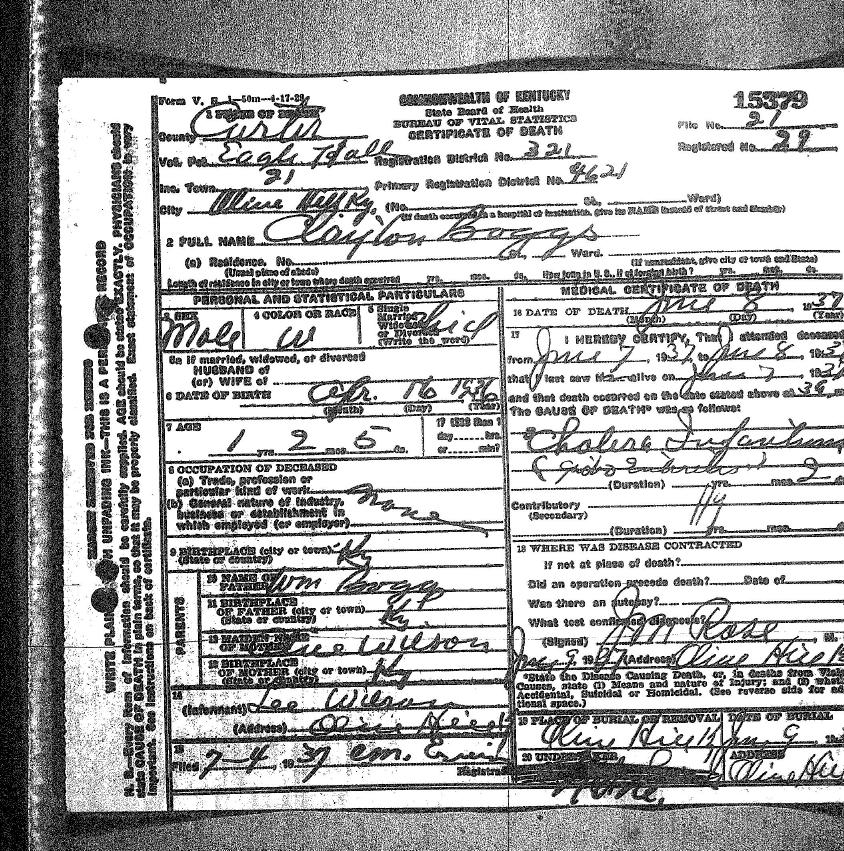 Form V. S. 1—50m—4-17-29
COMMONWEALTH OF KENTUCKY
State Board of Health
BUREAU OF VITAL STATISTICS
CERTIFICATE OF DEATH
15379
File No. 21
Registered No. 29
1 PLACE OF DEATH
County Carter
Vot. Pct. Eagle Hall Registration District No. 321
21
Inc. Town Primary Registration District No. 4621
City Olive Hill Ky. (No. St., Ward)
(If death occurred in a hospital or institution, give its NAME instead of street and number)
2 FULL NAME Clayton Boggs
(a) Residence. No. St. Ward.
(Usual place of abode) (If nonresident, give city or town and State)
Length of residence in city or town where death occurred yrs. mos. ds. How long in U. S., if of foreign birth? yrs. mos. ds.
PERSONAL AND STATISTICAL PARTICULARS
3 SEX Male
4 COLOR OR RACE W
5 Single Married Widowed or Divorced (Write the word)
5a If married, widowed, or divorced
HUSBAND of
(or) WIFE of
6 DATE OF BIRTH Apr. 1936
(Month) (Day) (Year)
7 AGE 1 yrs. 2 mos. 5 ds.
If LESS than 1
day hrs.
or min?
8 OCCUPATION OF DECEASED
(a) Trade, profession or
particular kind of work
(b) General nature of industry,
business or establishment in
which employed (or employer)
none
9 BIRTHPLACE (city or town) Ky
(State or country)
PARENTS
10 NAME OF
FATHER Wm Boggs
11 BIRTHPLACE
OF FATHER (city or town) Ky.
(State or country)
12 MAIDEN NAME
OF MOTHER Wilson
13 BIRTHPLACE
OF MOTHER (city or town) Ky
(State or country)
14
(Informant) Lee Wilson
(Address) Olive Hill K
15
Filed 7-4, 1937
Registrar
MEDICAL CERTIFICATE OF DEATH
16 DATE OF DEATH June 8 1937
(Month) (Day) (Year)
17 I HEREBY CERTIFY, That I attended deceased
from June 7, 1937, to June 8, 193
that I last saw h alive on June 7 193
and that death occurred on the date stated above at
The CAUSE OF DEATH* was as follows:
Cholera Infantum
(Duration) yrs. mos. 2
Contributory
(Secondary)
(Duration) yrs. mos.
18 WHERE WAS DISEASE CONTRACTED
If not at place of death?
Did an operation precede death? Date of
Was there an autopsy?
What test confirmed diagnosis?
(Signed) Rose M.
June 9, 1937 (Address) Olive Hill K
*State the Disease Causing Death, or, in deaths from Viol
Causes, state (1) Means and nature of Injury; and (2) whet
Accidental, Suicidal or Homicidal. (See reverse side for ad
tional space.)
19 PLACE OF BURIAL OR REMOVAL
Olive Hill K
DATE OF BURIAL
June 9
20 UNDERTAKER
None.
ADDRESS
Olive Hill
WRITE PLAINLY WITH UNFADING INK—THIS IS A PERMANENT RECORD
N. B.—Every item of information should be carefully supplied. AGE should be stated EXACTLY. PHYSICIANS should
state CAUSE OF DEATH in plain terms, so that it may be properly classified. Exact statement of OCCUPATION is very
important. See instructions on back of certificate.